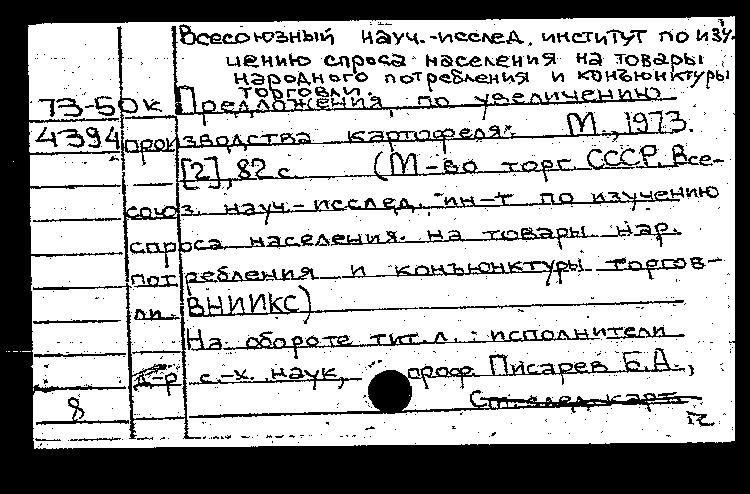 Всесоюзный науч.-исслед. институт по изу-
чению спроса населения на товары
народного потребления и конъюнктуры
торговли.
73-50к Предложения по увеличению
4394 производства картофеля. М., 1973.
[2], 82 с. (М-во торг. СССР. Все-
союз. науч.-исслед. ин-т по изучению
спроса населения на товары нар.
потребления и конъюнктуры торгов-
ли. ВНИИКС)
На обороте тит. л.: исполнители
д-р с.-х. наук, проф. Писарев Б.А.,
8 См. след. карт.